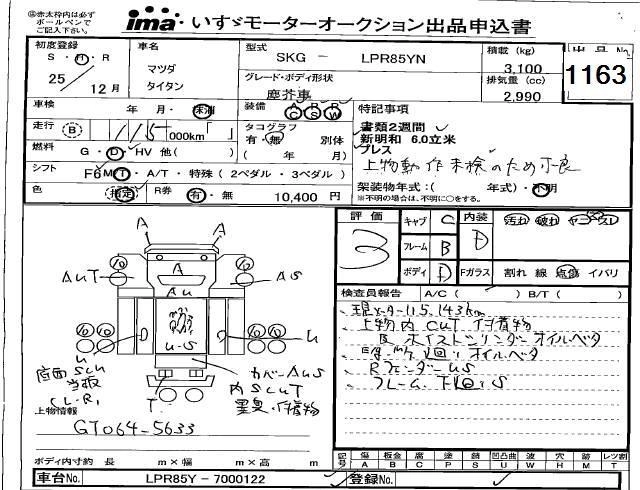 ※赤太枠内は必ず
ボールペンで
ご記入下さい。
ima いすゞモーターオークション出品申込書
初度登録
S・H・R
25/12月
車名
マツダ
タイタン
型式
SKG－ LPR85YN
グレード・ボディ形状
塵芥車
積載 (kg)
3,100
排気量 (cc)
2,990
出品No
1163
車検 年 月・未満
装備 A R R
C S W
特記事項
走行 B 115 000km「 」
タコグラフ
有・無 別体
( 年 月)
書類2週間
新明和 6.0立米
プレス
上物動作未検のため不良
燃料 G・D・HV 他( )
シフト F6 MT・A/T・特殊 (2ペダル・3ペダル)
色 指定 R券 有・無 10,400 円
架装物年式：( 年式)・不明
※不明の場合は、不明に○をする。
評価
3
キャブ C
フレーム B
ボディ D
内装 D
汚れ 破れ ヤニ・スレ
Fガラス 割れ 線 点傷 イバリ
検査員報告 A/C( ) B/T( )
現メーター115,143km
上物内 CUT 付着物
ホイストシリンダーオイルベタ
オイルベタ
RフェンダーUS
フレーム、下回りS
A
A
A
AU
AUT
AS
U-S
U
U
底面SCU
当板
(L・R)
T
カバーAUS
内SCUT
悪臭・付着物
上物情報
GT064-5633
ボディ内寸約 長 m×幅 m×高 m
記号 傷 A 板金 B 腐 C 塗 P 錆 S 凹凸曲 U 波 W 穴 H 欠 M レツ割 T
車台No. LPR85Y－7000122 登録No.